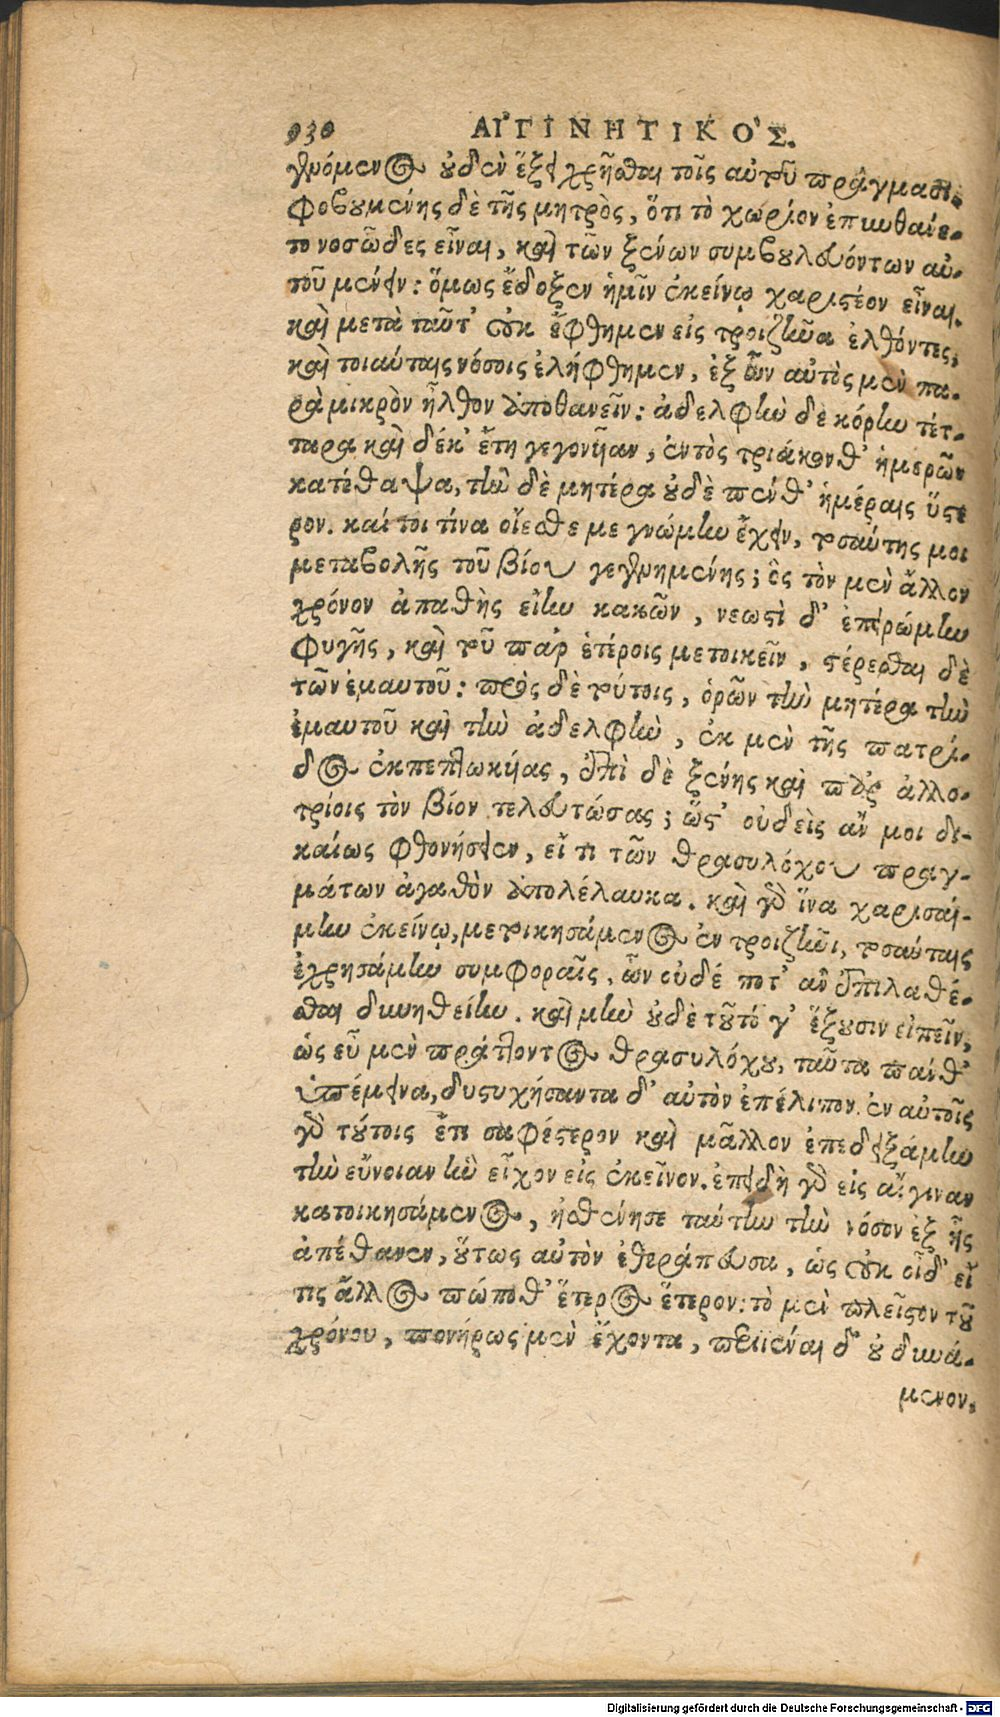 930 ΑΙ᾿ΓΙΝΗΤΙΚΟ`Σ.
γνόμενος οὐδὲν ἕξει χρῆσθαι τοῖς αὑτοῦ πράγμασι.
φοβουμένης δὲ τῆς μητρὸς, ὅτι τὸ χωρίον ἐπυνθάνε-
το νοσῶδες εἶναι, καὶ τῶν ξένων συμβουλευόντων αὐ-
τοῦ μένειν: ὅμως ἔδοξεν ἡμῖν ἐκείνῳ χαριστέον εἶναι.
καὶ μετὰ ταῦτ' οὐκ ἔφθημεν εἰς τροιζῆνα ἐλθόντες,
καὶ τοιαύταις νόσοις ἐλήφθημεν, ἐξ ὧν αὐτὸς μὲν πα-
ρὰ μικρὸν ἦλθον ἀποθανεῖν: ἀδελφὴν δὲ κόρην τέτ-
ταρα καὶ δέκ' ἔτη γεγονυῖαν, ἐντὸς τριάκονθ' ἡμερῶν
κατέθαψα, τὴν δὲ μητέρα οὐδὲ πένθ' ἡμέραις ὕστε
ρον. καί τοι τίνα οἴεσθε με γνώμην ἔχειν, τοσαύτης μοι
μεταβολῆς τοῦ βίου γεγνημένης; ὃς τὸν μὲν ἄλλον
χρόνον ἀπαθὴς εἴην κακῶν, νεωστὶ δ' ἐπειρώμην
φυγῆς, καὶ τοῦ παρ' ἑτέροις μετοικεῖν, στέρεσθαι δὲ
τῶν ἐμαυτοῦ: πρὸς δὲ τούτοις, ὁρῶν τὴν μητέρα τὴν
ἐμαυτοῦ καὶ τὴν ἀδελφὴν, ἐκ μὲν τῆς πατρί-
δος ἐκπεπτωκυίας, ἐπὶ δὲ ξένης καὶ παρ' ἀλλο-
τρίοις τὸν βίον τελευτώσας; ὥστ' οὐδεὶς ἄν μοι δι-
καίως φθονήσειεν, εἴ τι τῶν θρασυλόχου πραγ-
μάτων ἀγαθὸν ἀπολέλαυκα. καὶ γὰρ ἵνα χαρισαί-
μην ἐκείνῳ, μετοικησάμενος ἐν τροιζῆνι, τοσαύταις
ἐχρησάμην συμφοραῖς, ὧν οὐδέ ποτ' ἂν ἐπιλαθέ-
σθαι δυνηθείην. καὶ μὴν οὐδὲ τοῦτό γ' ἕξουσιν εἰπεῖν,
ὡς εὖ μὲν πράττοντος θρασυλόχου, ταῦτα πάνθ'
ὑπέμεινα, δυστυχήσαντα δ' αὐτὸν ἐπέλιπον. ἐν αὐτοῖς
γὰρ τούτοις ἔτι σαφέστερον καὶ μᾶλλον ἐπεδειξάμην
τὴν εὔνοιαν ἣν εἶχον εἰς ἐκεῖνον. ἐπειδὴ γὰρ εἰς αἴγιναν
κατοικησάμενος, ἠσθένησε ταύτην τὴν νόσον ἐξ ἧς
ἀπέθανεν, οὕτως αὐτὸν ἐθεράπευσα, ὡς οὐκ οἶδ' εἴ
τις ἄλλος πώποθ' ἕτερος ἕτερον: τὸ μὲν πλεῖστον τοῦ
χρόνου, πονήρως μὲν ἔχοντα, περιιέναι δ' οὐ δυνά-
μενον.
Digitalisierung gefördert durch die Deutsche Forschungsgemeinschaft - DFG